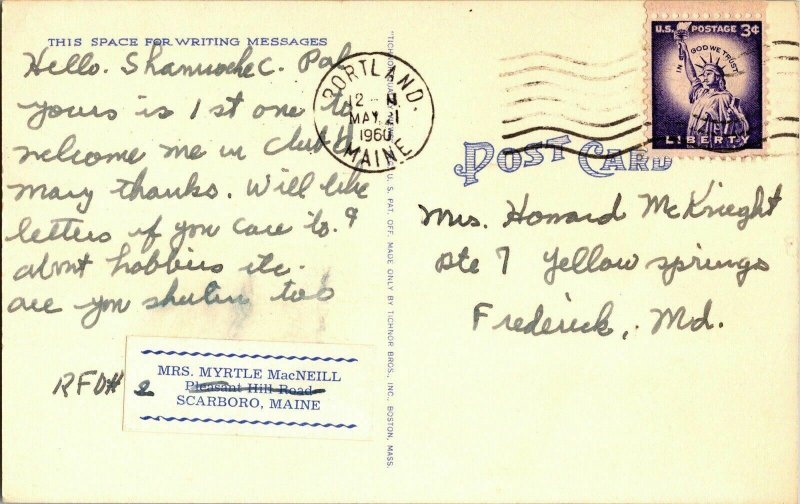 THIS SPACE FOR WRITING MESSAGES
Hello. Shamrock C. Pal
yours is 1st one to
welcome me in club
many thanks. Will like
letters if you care to. &
about hobbies etc.
are you too
RFD# 2
MRS. MYRTLE MacNEILL
Pleasant Hill Road
SCARBORO, MAINE
PORTLAND,
12 - M
MAY 21
1960
MAINE
U. S. PAT. OFF. MADE ONLY BY TICHNOR BROS., INC., BOSTON, MASS.
U.S. POSTAGE 3¢
IN GOD WE TRUST
LIBERTY
POST CARD
Mrs. Howard McKnieght
Rte 7 Yellow springs
Frederick, Md.